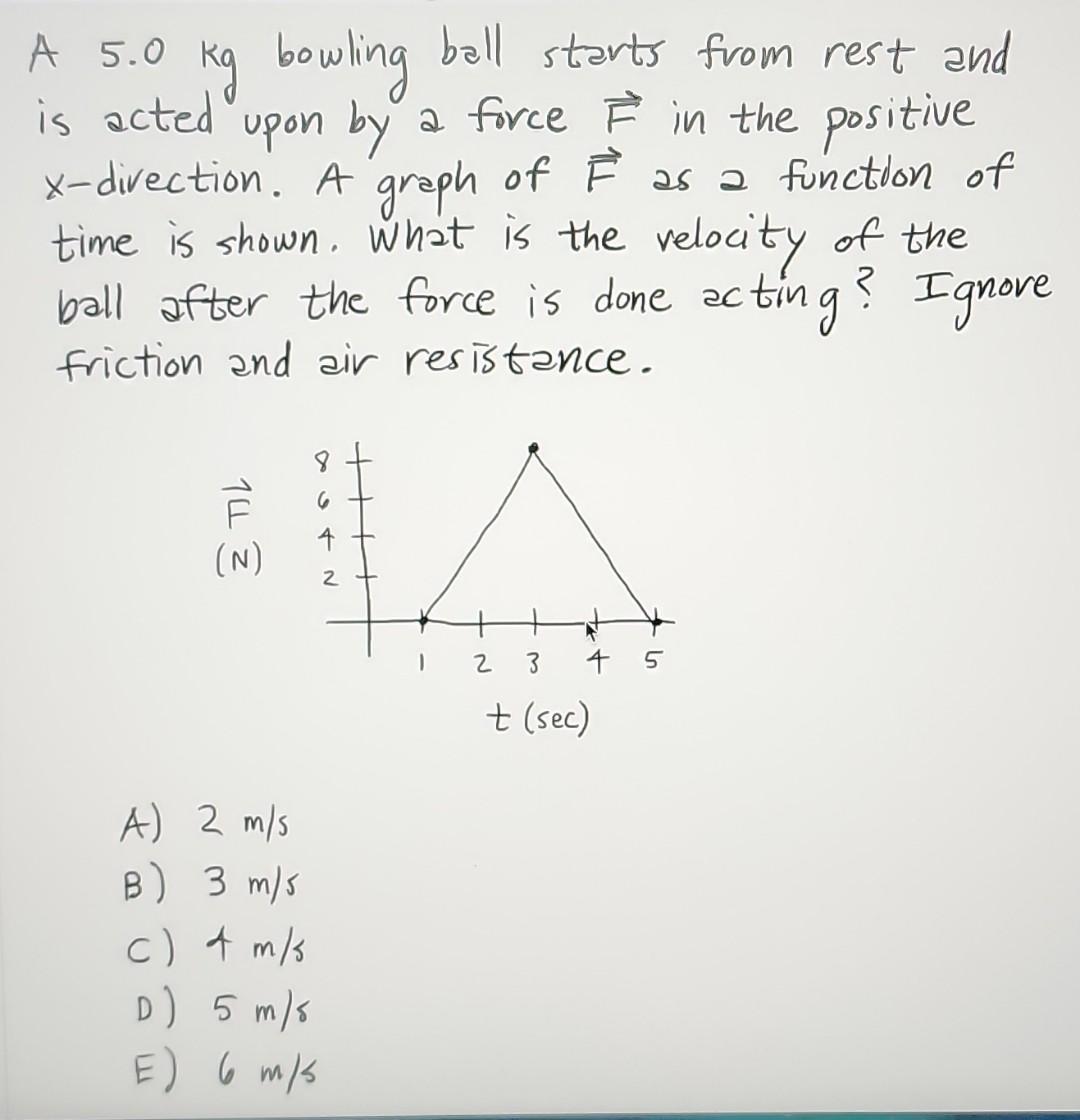 A 5.0 kg bowling ball starts from rest and
is acted upon by a force F⃗ in the positive
x-direction. A graph of F⃗ as a function of
time is shown. What is the velocity of the
ball after the force is done acting? Ignore
friction and air resistance.
8
6
4
2
F⃗
(N)
1 2 3 4 5
t (sec)
A) 2 m/s
B) 3 m/s
C) 4 m/s
D) 5 m/s
E) 6 m/s